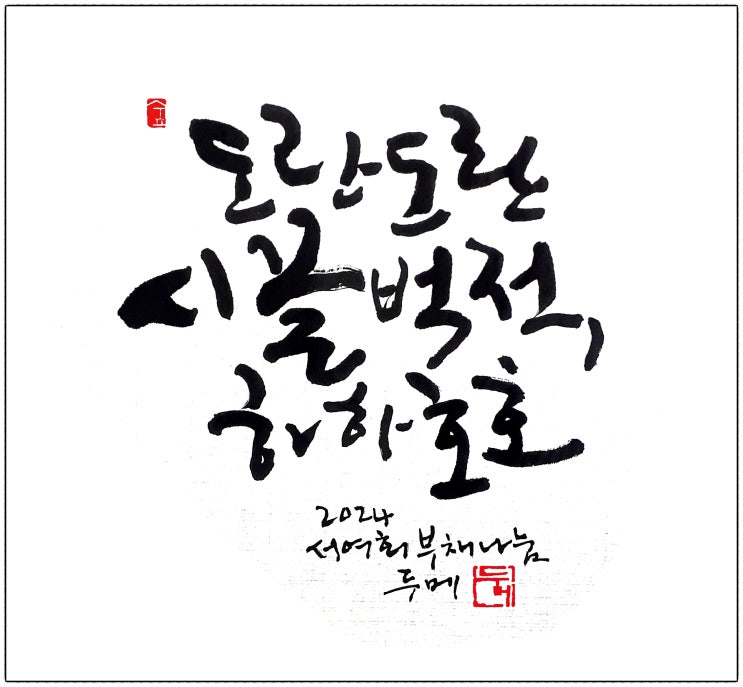 도란도란
시골벅적,
하하호호
2024
서여회 부채나눔
두메
두메